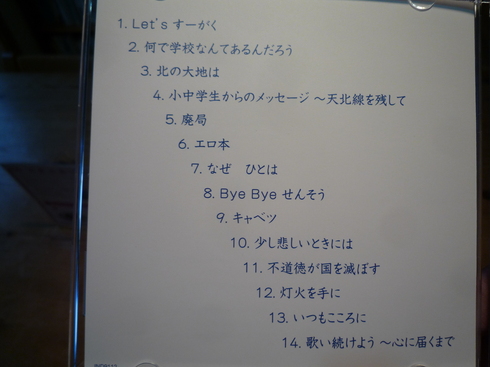 1. Let's すーがく
2. 何で学校なんてあるんだろう
3. 北の大地は
4. 小中学生からのメッセージ ～天北線を残して
5. 廃局
6. エロ本
7. なぜ　ひとは
8. Bye Bye せんそう
9. キャベツ
10. 少し悲しいときには
11. 不道徳が国を滅ぼす
12. 灯火を手に
13. いつもこころに
14. 歌い続けよう ～心に届くまで